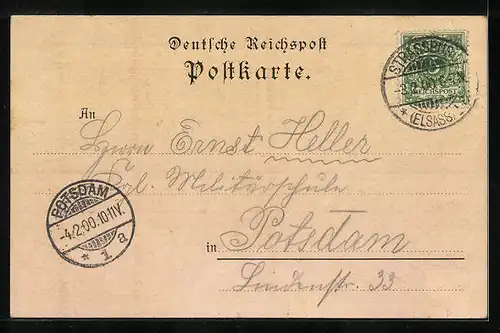 Deutsche Reichspost
Postkarte.
STRASSBURG
-3.2.00
(ELSASS)
REICHSPOST
An
Herrn Ernst Heller
Kgl. Militärschule
POTSDAM
-4.2.00.10-11V.
* 1 a
in Potsdam
Lindenstr. 33